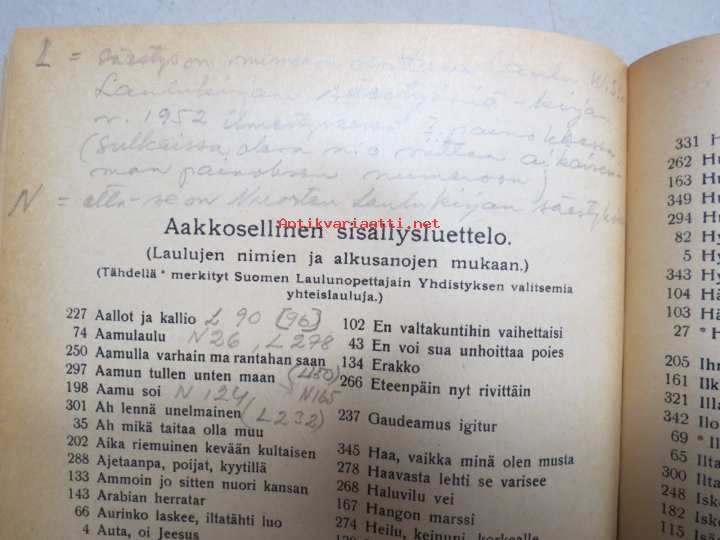 L = säestys on numeron
Laulukirjan säestysniä-kirjan
v. 1952 ilmestyneessä 7. painoksessa
(Sulkeissa oleva nio viittaa aikaisem-
man painoksen numeroon)
N = että se on Nuorten Laulukirjan säestyk
Antikvariaatti.net
Aakkosellinen sisällysluettelo.
(Laulujen nimien ja alkusanojen mukaan.)
(Tähdellä * merkityt Suomen Laulunopettajain Yhdistyksen valitsemia
yhteislauluja.)
227 Aallot ja kallio L 90 [96]
74 Aamulaulu N 26, L 278
250 Aamulla varhain ma rantahan saan
297 Aamun tullen unten maan (L150)
198 Aamu soi N 124
301 Ah lennä unelmainen (L232)
35 Ah mikä taitaa olla muu
202 Aika riemuinen kevään kultaisen
288 Ajetaanpa, poijat, kyytillä
133 Ammoin jo sitten nuori kansan
143 Arabian herratar
66 Aurinko laskee, iltatähti luo
4 Auta, oi Jeesus
102 En valtakuntihin vaihettaisi
43 En voi sua unhoittaa poies
134 Erakko
266 Eteenpäin nyt rivittäin
N165
237 Gaudeamus igitur
345 Haa, vaikka minä olen musta
278 Haavasta lehti se varisee
268 Haluvilu vei
167 Hangon marssi
274 Heilu, keinuni, korkealle
331 H
262 Hu
163 Hu
349 Hu
294 Hu
82 Hy
5 Hy
343 Hy
104 Hä
103 Hä
27 * H
205 Ihr
161 Ilk
321 Illa
342 Ilo
69 * Il
65 Ilt
300 Ilta
248 Isk
182 Iske
115 Isä